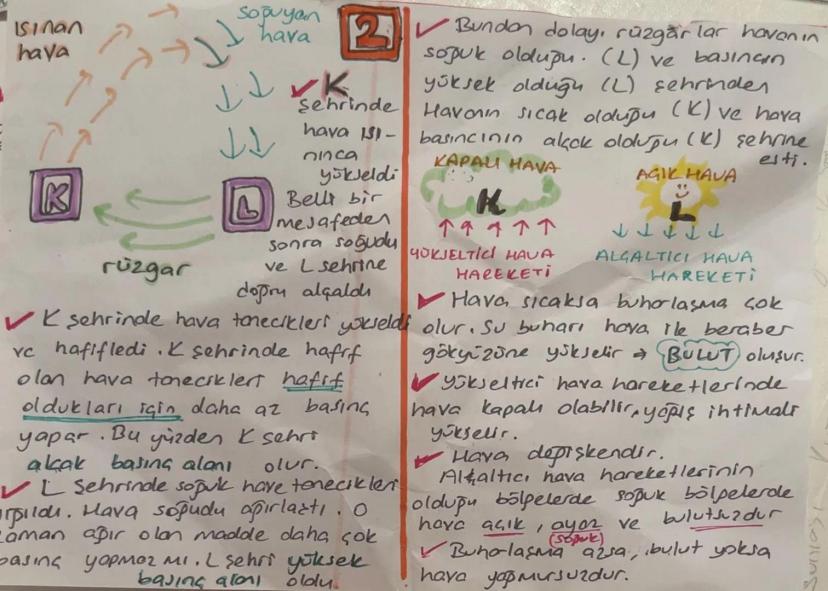 ısınan
hava
soğuyan
hava
2
✓ K
şehrinde
hava ısı-
nınca
yükseldi
Belli bir
mesafeden
sonra soğudu
ve L şehrine
doğru alçaldı
K
L
rüzgar
✓ K şehrinde hava tanecikleri yükseldi
ve hafifledi. K şehrinde hafif
olan hava tanecikleri hafif
oldukları için daha az basınç
yapar. Bu yüzden K şehri
alçak basınç alanı olur.
✓ L şehrinde soğuk hava tanecikleri
Hava soğudu ağırlaştı. O
zaman ağır olan madde daha çok
basınç yapmaz mı. L şehri yüksek
basınç alanı oldu.
✓ Bundan dolayı rüzgarlar havanın
soğuk olduğu. (L) ve basıncın
yüksek olduğu (L) şehrinden
Havanın sıcak olduğu (K) ve hava
basıncının alçak olduğu (K) şehrine
esti.
KAPALI HAVA
K
YÜKSELTİCİ HAVA
HAREKETİ
AÇIK HAVA
L
ALÇALTICI HAVA
HAREKETİ
✓ Hava sıcaksa buharlaşma çok
olur. Su buharı hava ile beraber
gökyüzüne yükselir → BULUT oluşur.
✓ Yükseltici hava hareketlerinde
hava kapalı olabilir, yağış ihtimali
yükselir.
✓ Hava değişkendir.
Alçaltıcı hava hareketlerinin
olduğu bölgelerde soğuk bölgelerde
hava açık, ayaz ve bulutsuzdur
(soğuk)
✓ Buharlaşma azsa, bulut yoksa
hava yağmursuzdur.